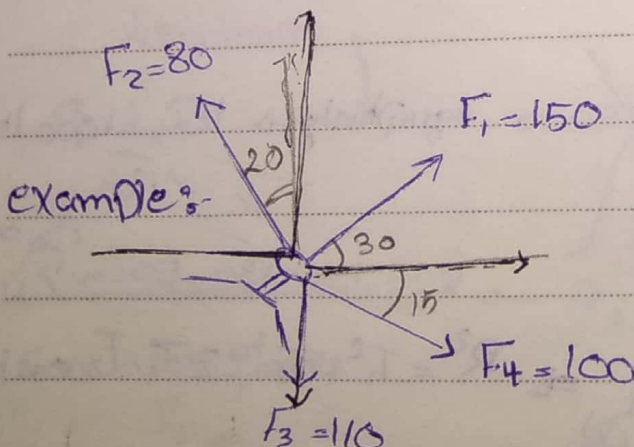 F2=80
F1=150
20
example:-
30
15
F4=100
F3=110